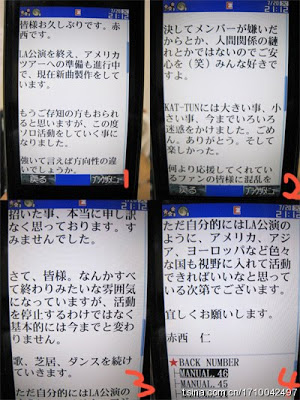 21:12
皆様お久しぶりです。赤
西です。
LA公演を終え、アメリカ
ツアーへの準備も進行中
で、現在新曲製作をして
います。
もうご存知の方もおられる
と思いますが、この度
ソロ活動をしていく事に
なりました。
強いて言えば方向性の違
いでしょうか。
戻る
ブックマ/メニュー
1
21:12
決してメンバーが嫌いだ
からとか、人間関係の縺
れとかではないのでご安
心を（笑）みんな好きで
すよ。
KAT-TUNには大きい事、小
さい事、今までいろいろ
迷惑をかけました。ごめ
ん。ありがとう。そして
楽しかった。
何より応援してくれてい
るファンの皆様に混乱を
戻る
ブックマ/メニュー
2
招いた事、本当に申し訳
なく思っております。す
みませんでした。
さて、皆様。なんかすべ
て終わりみたいな雰囲気
になっていますが、活動
を停止するわけではなく
基本的には今までと変わ
りません。
歌、芝居、ダンスを続け
ていきます。
ただ自分的にはLA公演の
3
21:12
ただ自分的にはLA公演の
ように、アメリカ、アジ
ア、ヨーロッパなど色々
な国も視野に入れて活動
できればいいなと思って
いる次第でございます。
宜しくお願いします。
赤西 仁
★BACK NUMBER
MANUAL.46
MANUAL.45
4
tsina.com.cn/1710042497